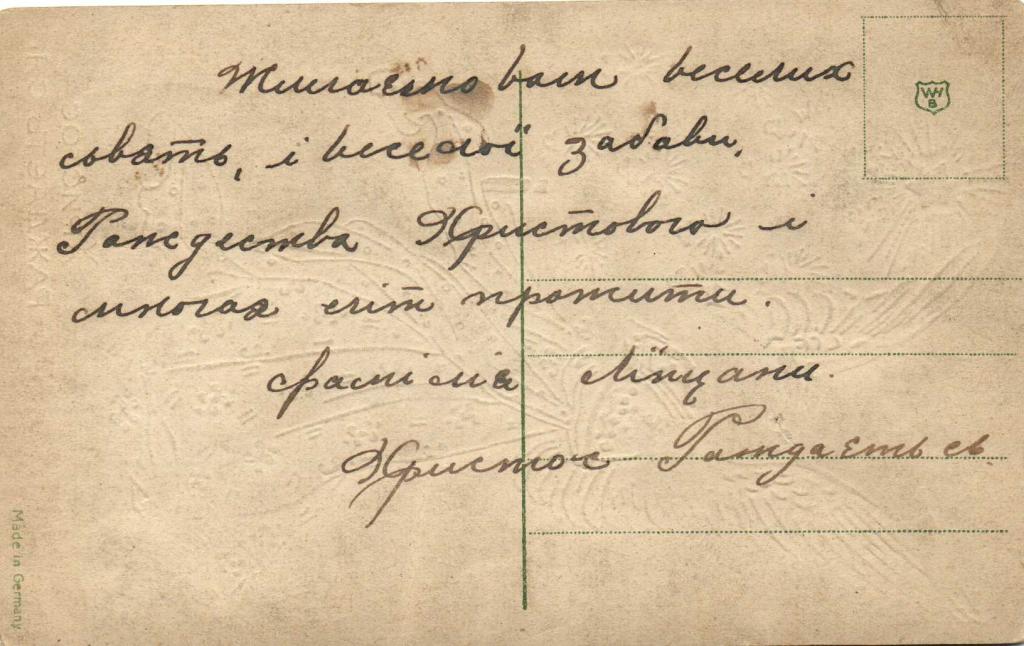 Жилаємо вам веселих
сьвать, і веселої забави,
Рождества Христового і
многая літ прожити.
фамілія
Христос Рождаєть сь
WW
B
Made in Germany